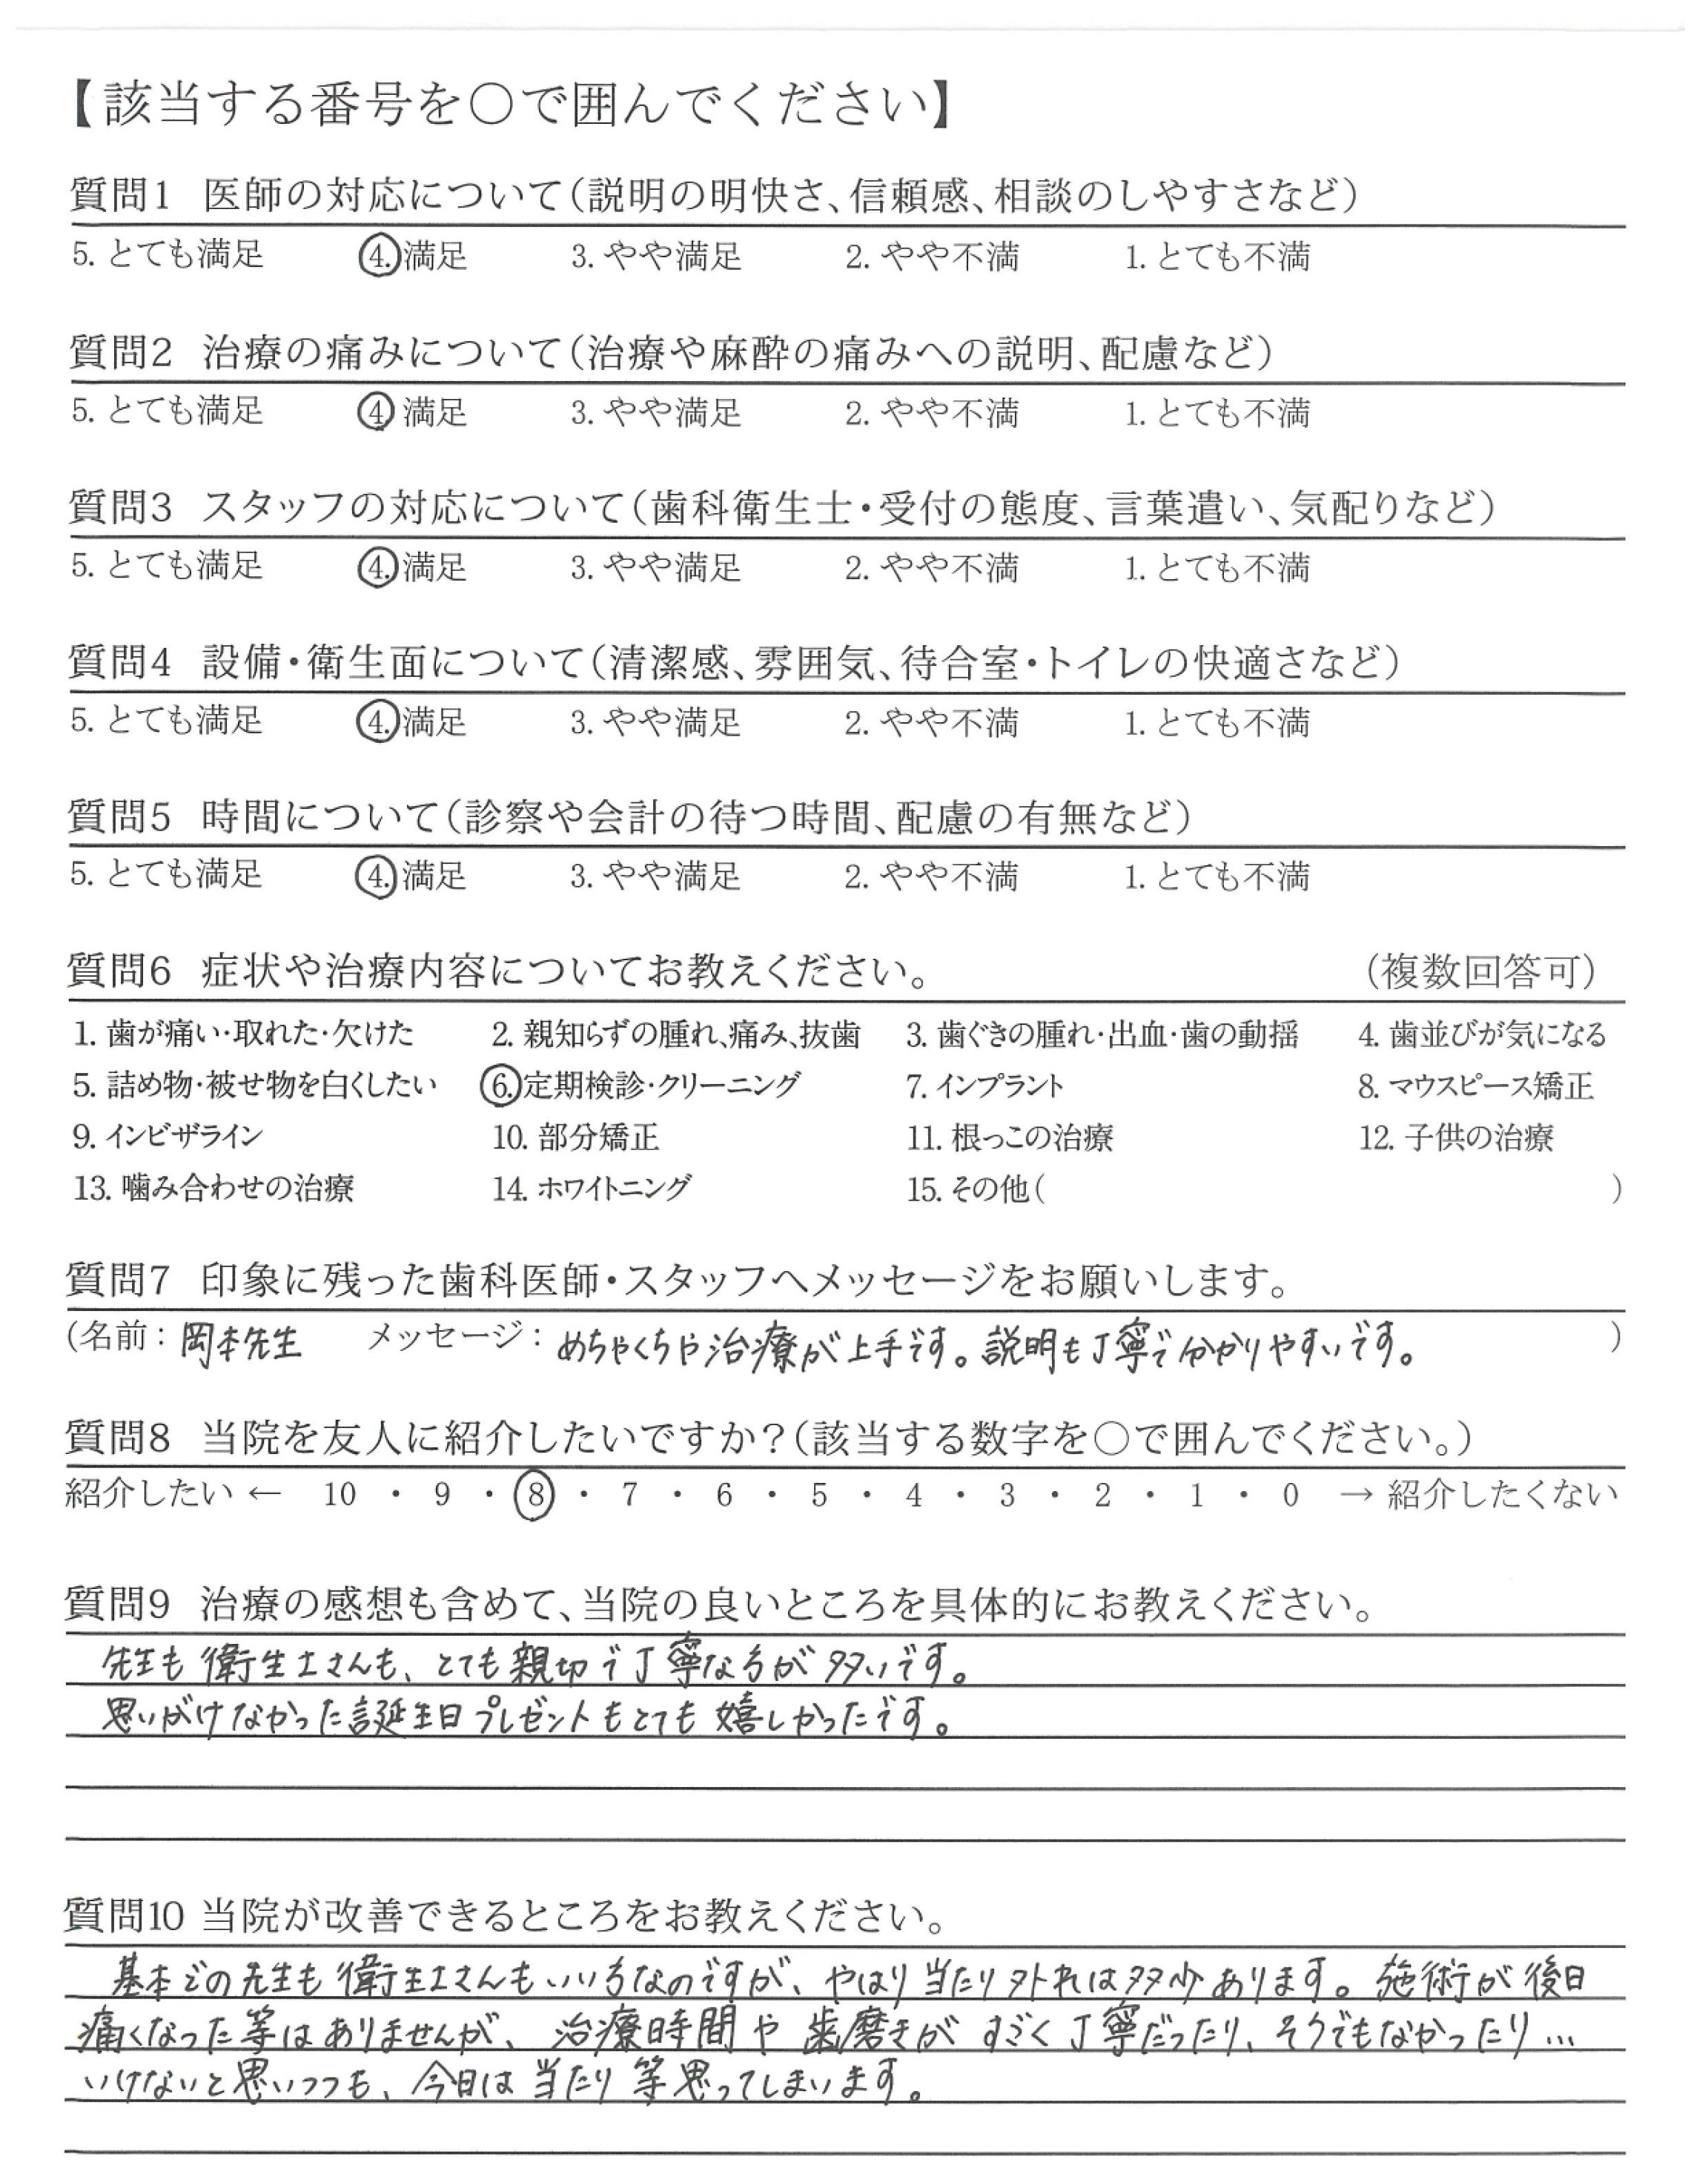 【該当する番号を〇で囲んでください】
質問1 医師の対応について(説明の明快さ、信頼感、相談のしやすさなど)
5. とても満足 4. 満足 3. やや満足 2. やや不満 1. とても不満
質問2 治療の痛みについて(治療や麻酔の痛みへの説明、配慮など)
5. とても満足 4. 満足 3. やや満足 2. やや不満 1. とても不満
質問3 スタッフの対応について(歯科衛生士・受付の態度、言葉遣い、気配りなど)
5. とても満足 4. 満足 3. やや満足 2. やや不満 1. とても不満
質問4 設備・衛生面について(清潔感、雰囲気、待合室・トイレの快適さなど)
5. とても満足 4. 満足 3. やや満足 2. やや不満 1. とても不満
質問5 時間について(診察や会計の待つ時間、配慮の有無など)
5. とても満足 4. 満足 3. やや満足 2. やや不満 1. とても不満
質問6 症状や治療内容についてお教えください。 (複数回答可)
1. 歯が痛い・取れた・欠けた 2. 親知らずの腫れ、痛み、抜歯 3. 歯ぐきの腫れ・出血・歯の動揺 4. 歯並びが気になる
5. 詰め物・被せ物を白くしたい 6. 定期検診・クリーニング 7. インプラント 8. マウスピース矯正
9. インビザライン 10. 部分矯正 11. 根っこの治療 12. 子供の治療
13. 噛み合わせの治療 14. ホワイトニング 15. その他( )
質問7 印象に残った歯科医師・スタッフへメッセージをお願いします。
(名前: 岡本先生 メッセージ: めちゃくちゃ治療が上手です。説明も丁寧で分かりやすいです。 )
質問8 当院を友人に紹介したいですか?(該当する数字を〇で囲んでください。)
紹介したい ← 10 ・ 9 ・ 8 ・ 7 ・ 6 ・ 5 ・ 4 ・ 3 ・ 2 ・ 1 ・ 0 → 紹介したくない
質問9 治療の感想も含めて、当院の良いところを具体的にお教えください。
先生も衛生士さんも、とても親切で丁寧な方が多いです。
思いがけなかった誕生日プレゼントもとても嬉しかったです。
質問10 当院が改善できるところをお教えください。
基本どの先生も衛生士さんもいい方なのですが、やはり当たり外れは多少あります。施術が後日
痛くなった等はありませんが、治療時間や歯磨きがすごく丁寧だったり、そうでもなかったり…
いけないと思いつつも、今日は当たり等思ってしまいます。